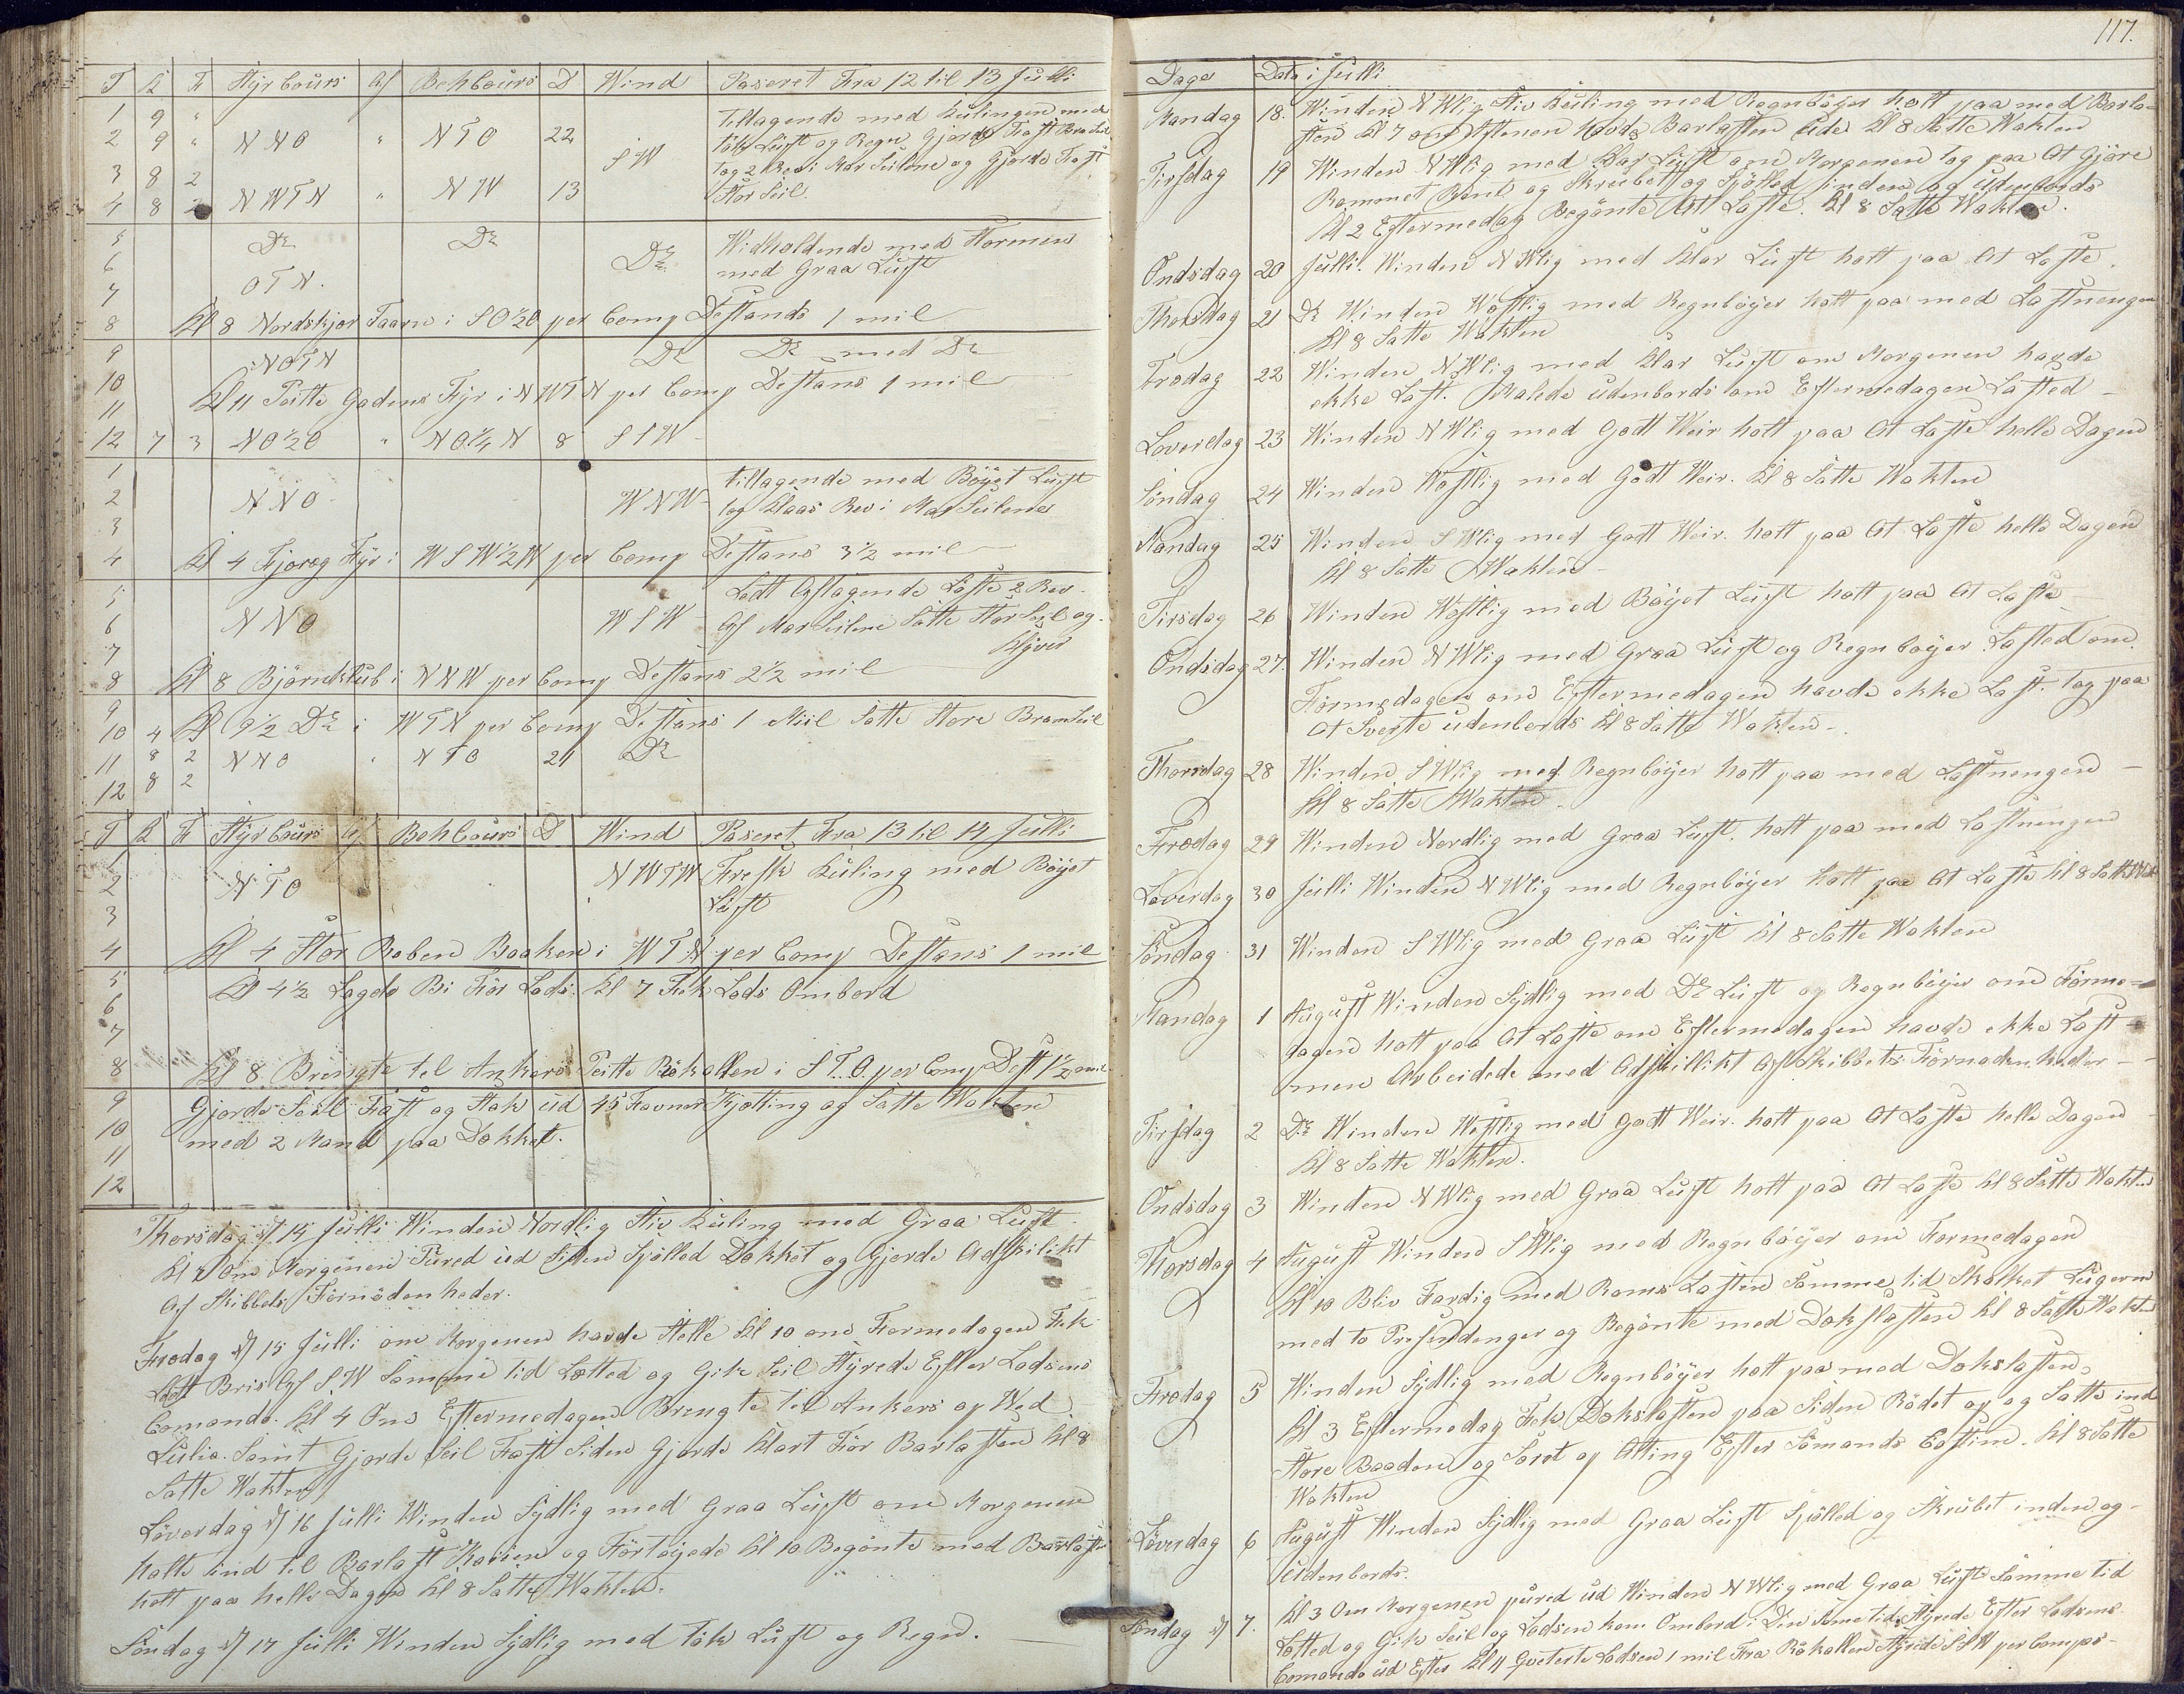 T K F Styrcours Af Behcours D Wind Paseret Fra 12 til 13 Julli
1 9 " Tilltagende med Kulingen med
2 9 " NNO " NTO 22 Tøk Luft og Regn Gjorde Fast Bramseil
3 8 2 SW tog 2 Rev i Mar Seilene og Gjorde Fast
4 8 2 NWTN " NW 13 Stor Seil.
5 Do Do Widholdende med Stormen
6 Do med Graa Luft
7 OTN.
8 Kl 8 Nordskjør Taarn i SO½O per Comp Destands 1 mil
9 NOTN Do Do med Do
10
11 Kl 11 Peitte Gadens Fyr i NWTN per Comp Destans 1 mil
12 7 3 NO½O " NO¼N 8 SSW
1 tilltagende med Böyet Luft
2 NNO WNW tog Klaas Rev i Mar Seilene
3
4 Kl 4 Fjoreg Fyr i WSW½W per Comp Destans 3½ mil
5 Lodt Aftagende Löste 2 Rev
6 NNO WSW Af Mar Seilene Satte Stor Seil og
7 Klyver
8 Kl 8 Björnklub i NNW per Comp Destans 2½ mil
9
10 4 Kl 9½ Do i WTN per Comp Destans 1 Miil Satte Store Bramseil
11 8 2 NNO " NTO 21 Do
12 8 2
T K F Styrcours Af Behcours D Wind Paseret Fra 13 til 14 Julli
1 NWTW Fresk Kuling med Böyet
2 NTO Luft
3
4 Kl 4 Stor Reben Baaken i WTN per Comp Destans 1 mil
5 Kl 4½ Lagde Bi För Lods. Kl 7 Fik Lods Ombord
6
7
8 Kl 8 Bringte til Ankers Peitte Rökallen i STO per Comp Dest 1½ mil
9 Gjorde Seil Fast og Stak ud 45 Favner Kjetting og Satte Wakten
10 med 2 Mand paa Dækket.
11
12
Thorsdag d/ 14 Julli Winden Nordlig Stiv Kuling med Graa Luft
Kl 4 Om Morgenen Pured ud Siden Spölled Dækket og Gjorde Adskilikt
Af Skibbets Fornödenheder.
Fredag d/ 15 Julli om Morgenen havde Stelle Kl 10 om Formedagen Fik
Lodt Bris Af SW Samme tid Lætted og Gik Seil Styrede Efter Lodsens
Comando. Kl 4 Om Eftermedagen Bringte til Ankers op Wed
Lulia. Samt Gjorde Seil Fast Siden Gjorde Klart För Barlasten Kl 8
Satte Wakten
Löverdag d/ 16 Julli Winden Sydlig med Graa Luft om Morgenen
halte ind til Barlast Kaien og Förtöyede Kl 10 Begönte med Barlasten
hølt paa helle Dagen Kl 8 Satte Wakten.
Söndag d/ 17 Julli Winden Sydlig med tök Luft og Regn.
117.
Dage Data i Julli
Mandag 18. Winden NWlig Stiv Kuling med Regnböyer holt paa med Barla-
sten Kl 7 om Aftenen havde Barlasten Ude Kl 8 Satte Wakten
Tirsdag 19 Winden NWlig med Klar Luft om Morgenen tog paa At Gjöre
Rommet Rent og Skrubet og Spölled inden og Udenbords
Kl 2 Eftermedag Begönte Att Laste. Kl 8 Satte Wakten.
Ondsdag 20 Julli. Winden NWlig med Klar Luft holt paa At Laste.
Thorsdag 21 Do Winden Westlig med Regnböyer holt paa med Lastnengen
Kl 8 Satte Wakten
Fredag 22 Winden NWlig med Klar Luft om Morgenen havde
ekke Last. Malede udenbords om Eftermedagen Lasted
Löverdag 23 Winden NWlig med Godt Weir holt paa At Laste helle Dagen
Söndag 24 Winden Westlig med Godt Weir. Kl 8 Satte Wakten
Mandag 25 Winden SWlig med Godt Weir. holt paa At Laste helle Dagen
Kl 8 Satte Wakten
Tirsdag 26 Winden Westlig med Böyet Luft holt paa At Laste
Ondsdag 27. Winden NWlig med Graa Luft og Regnböyer Lasted om
Förmedagen om Eftermedagen havde ekke Last. tog paa
At Sverte udenbords Kl 8 Satte Wakten
Thorsdag 28 Winden SWlig med Regnböyer holt paa med Lastnengen
Kl 8 Satte Wakten
Fredag 29 Winden Nordlig med Graa Luft. holt paa med Lastnengen
Löverdag 30 Julli Winden NWlig med Regnböyer holt paa At Laste Kl 8 Satte Wak
Söndag 31 Winden SWlig med Graa Luft Kl 8 Satte Wakten
Mandag 1 August Winden Sydlig med Do Luft og Regnböyer om Förme-
dagen holt paa At Laste om Eftermedagen havde ekke Last
men Arbeidede med Adskillikt Af Skibbets Förnödenheder
Tirsdag 2 Do Winden Westlig med Godt Weir. holt paa At Laste helle Dagen
Kl 8 Satte Wakten.
Ondsdag 3 Winden NWlig med Graa Luft holt paa At Laste Kl 8 Satte Wakten
Thorsdag 4 August Winden SWlig med Regnböyer om Formedagen
Kl 10 Blev Færdig med Roms Lasten Samme tid Skalket Lugerne
med to Presendenger og Begönte med Dækslasten Kl 8 Satte Wakten
Fredag 5 Winden Sydlig med Regnböyer holt paa med Dækslasten,
Kl 3 Eftermedag Fik Dækslasten paa Siden Rödet op og Satte ind
Store Baaden og Soret op Alting Efter Sömands Costüme. Kl 8 Satte
Wakten
Löverdag 6 August Winden Sydlig med Graa Luft Spölled og Skrubet inden og
Udenbords.
Söndag d/ 7. Kl 3 Om Morgenen pured ud Winden NWlig med Graa Luft Samme tid
Lætted og Gik Seil og Lodsen kom Ombord i Den Same tid Styrede Efter Lodsens
Comando ud Efter Kl 11 Qveterte Lodsen 1 mil Fra Rökallen Styrede SSW per Comps